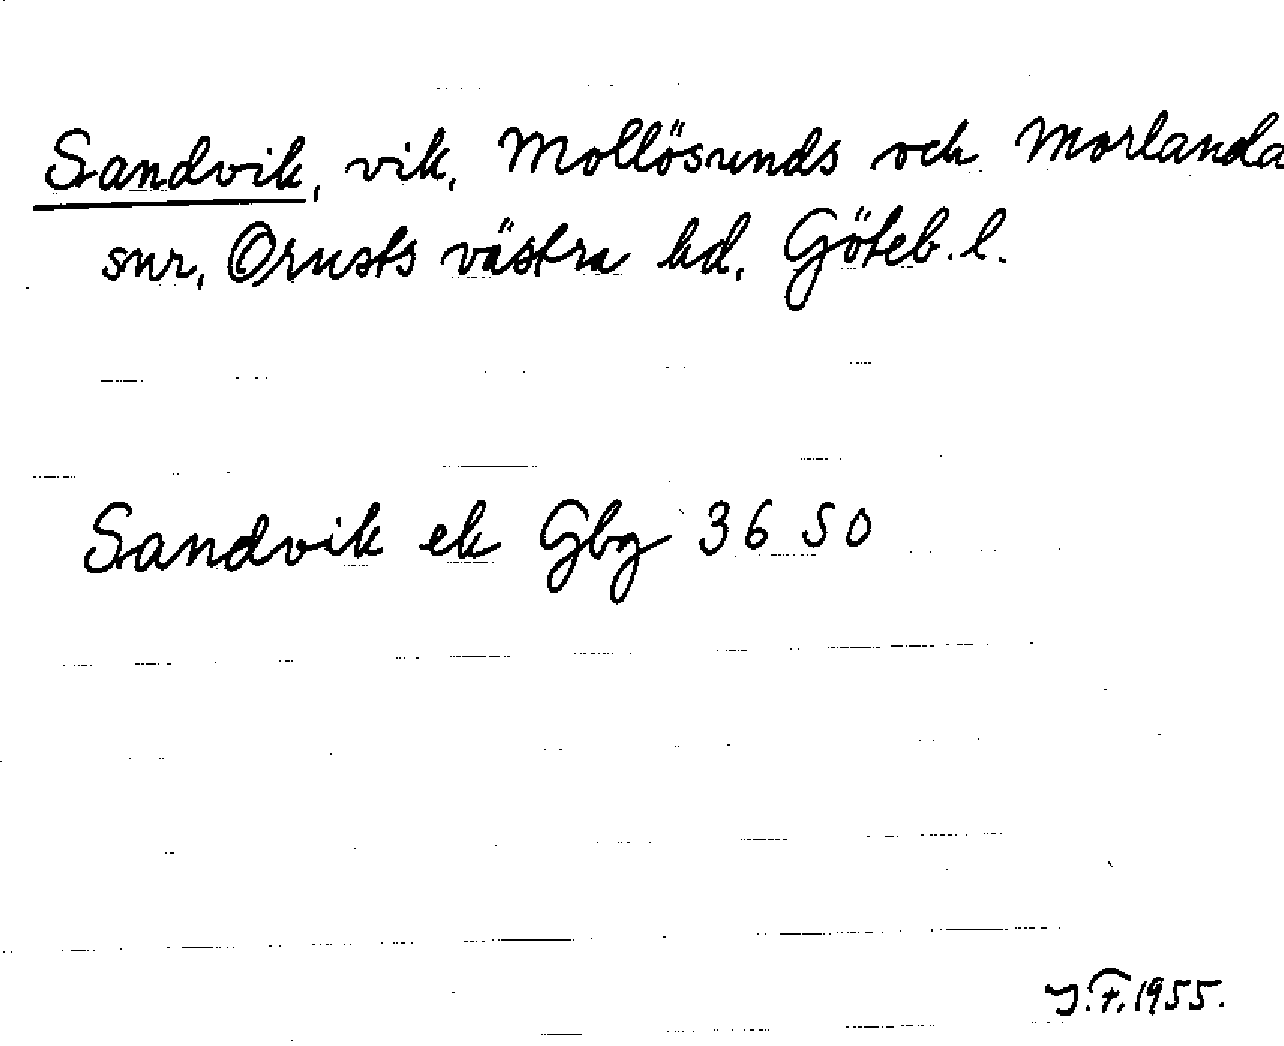 Sandvik, vik, Mollösunds och Morlanda
snr, Orusts västra hd, Göteb. l.
Sandvik ek Gbg 36 50
J.F. 1955.